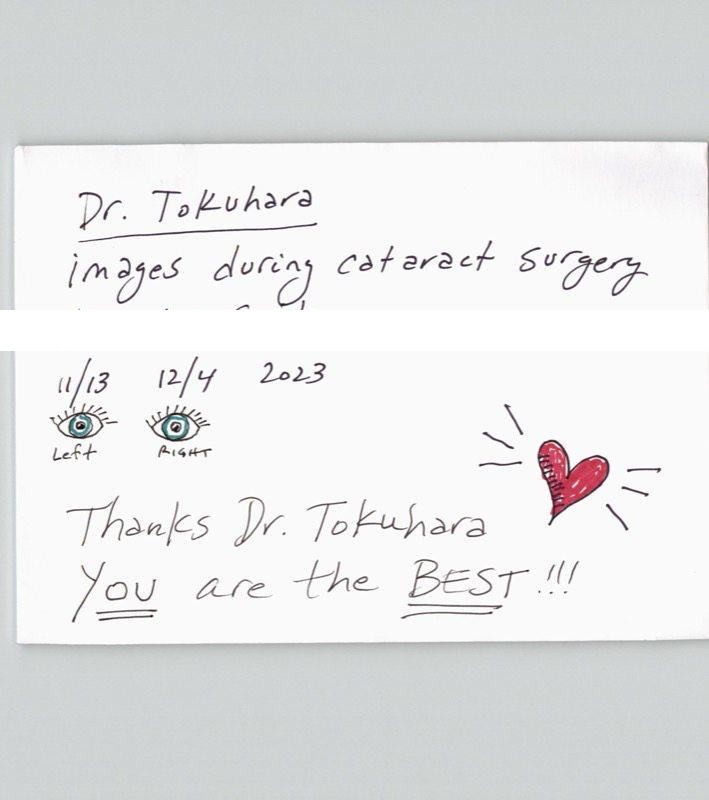 Dr. Tokuhara
images during cataract surgery
11/13 12/4 2023
Left RIGHT
Thanks Dr. Tokuhara
YOU are the BEST!!!